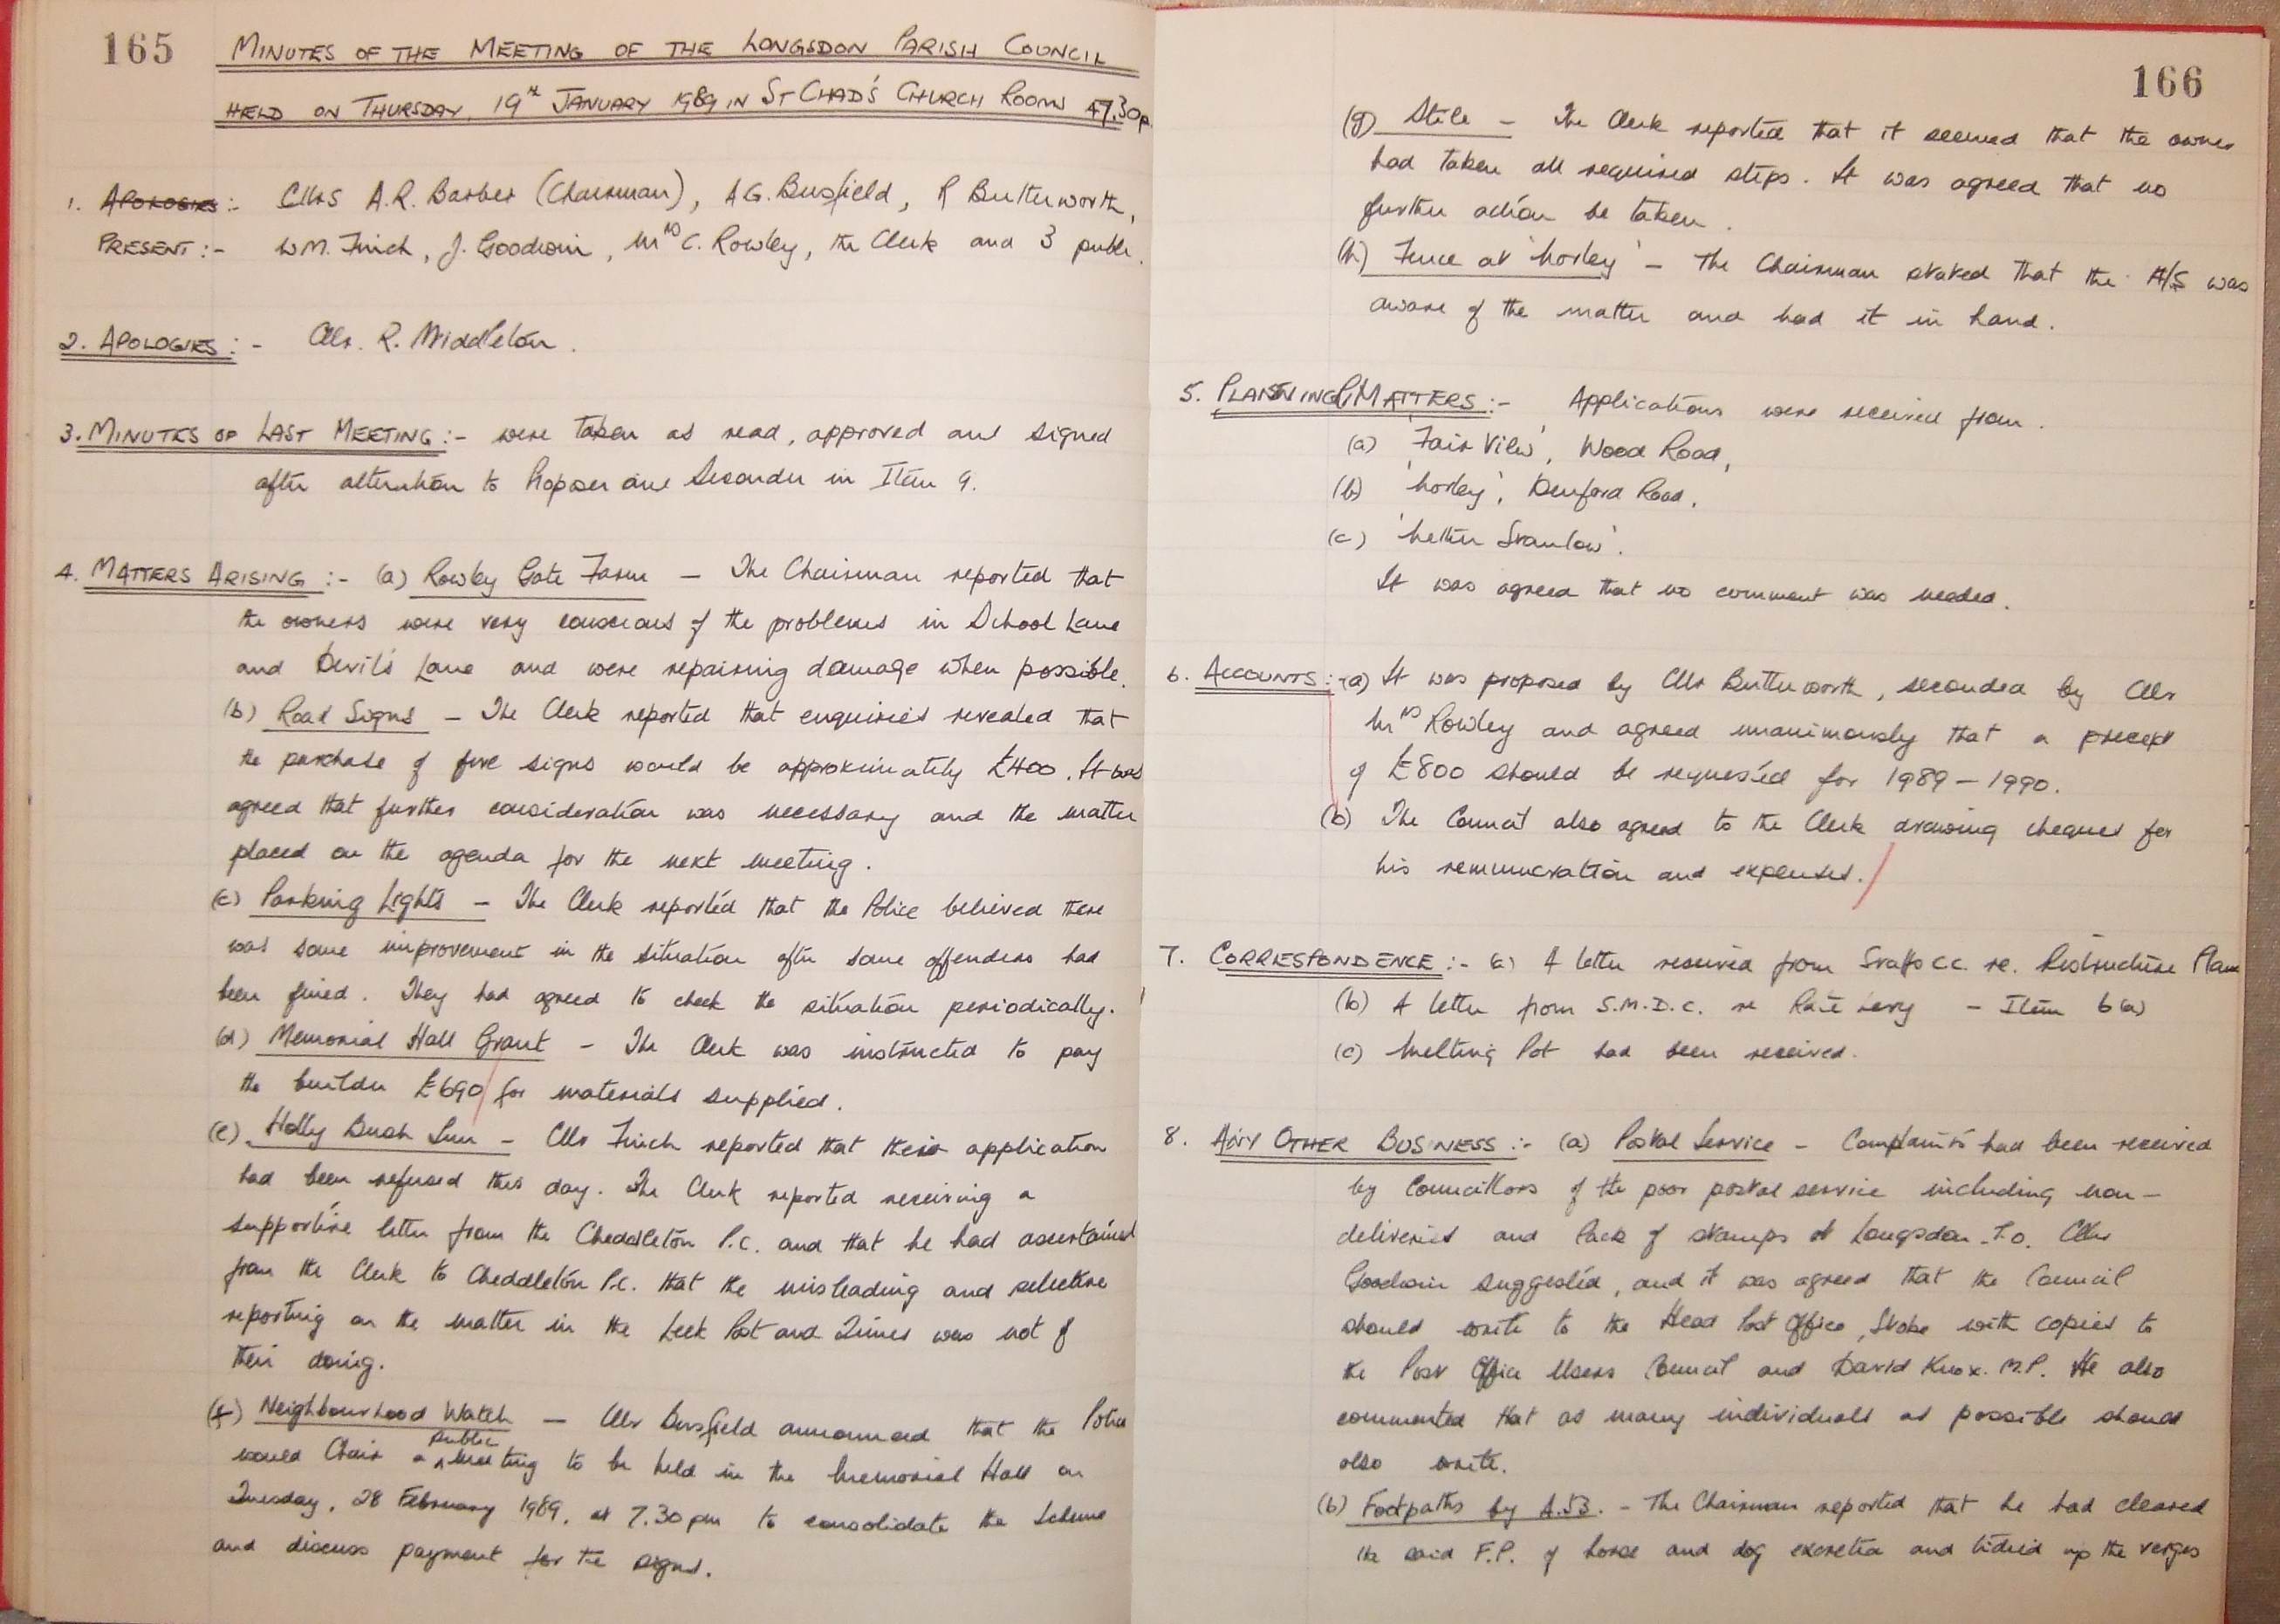 165
MINUTES OF THE MEETING OF THE LONGSDON PARISH COUNCIL
HELD ON THURSDAY, 19th JANUARY 1989 IN ST CHAD'S CHURCH ROOMS 47.30p.
1. APOLOGIES:- Cllrs A.R. Barber (Chairman), A.G. Busfield, R Butterworth,
PRESENT:- W.M. Finch, J. Goodwin, Mrs C. Rowley, the Clerk and 3 public.
2. APOLOGIES:- Cllr. R. Middleton.
3. MINUTES OF LAST MEETING:- were taken as read, approved and signed
after alteration to Proposer and Seconder in Item 9.
4. MATTERS ARISING:- (a) Rowley Gate Farm — The Chairman reported that
the owners were very conscious of the problems in School Lane
and Devil's Lane and were repairing damage when possible.
(b) Road Signs — The Clerk reported that enquiries revealed that
the purchase of five signs would be approximately £400. It was
agreed that further consideration was necessary and the matter
placed on the agenda for the next meeting.
(c) Parking Lights — The Clerk reported that the Police believed there
was some improvement in the situation after some offenders had
been fined. They had agreed to check the situation periodically.
(d) Memorial Hall Grant — The Clerk was instructed to pay
the builder £690 for materials supplied.
(e) Holly Bush Inn — Cllr Finch reported that their application
had been refused this day. The Clerk reported receiving a
supportive letter from the Cheddleton P.C. and that he had ascertained
from the Clerk to Cheddleton P.C. that the misleading and selective
reporting on the matter in the Leek Post and Times was not of
their doing.
(f) Neighbourhood Watch — Cllr Busfield announced that the Police
would Chair a public meeting to be held in the Memorial Hall on
Tuesday, 28 February 1989, at 7.30pm to consolidate the Scheme
and discuss payment for the signs.
166
(g) Stile — The Clerk reported that it seemed that the owner
had taken all required steps. It was agreed that no
further action be taken.
(h) Fence at 'Morley' — The Chairman stated that the A/S was
aware of the matter and had it in hand.
5. PLANNING MATTERS:- Applications were received from.
(a) 'Fair View', Wood Road,
(b) 'Morley', Denford Road,
(c) 'Nether Stanlow'.
It was agreed that no comment was needed.
6. ACCOUNTS:- (a) It was proposed by Cllr Butterworth, seconded by Cllr
Mrs Rowley and agreed unanimously that a precept
of £800 should be requested for 1989-1990.
(b) The Council also agreed to the Clerk drawing cheques for
his remuneration and expenses.
7. CORRESPONDENCE:- (a) A letter received from Staffs C.C. re. Restructure Plan
(b) A letter from S.M.D.C. re Rate Levy — Item 6(a)
(c) Melting Pot had been received.
8. ANY OTHER BUSINESS:- (a) Postal Service — Complaints had been received
by Councillors of the poor postal service including non-
deliveries and lack of stamps at Longsdon P.O. Cllr
Goodwin suggested, and it was agreed that the Council
should write to the Head Post Office, Stoke with copies to
the Post Office Users Council and David Knox. M.P. He also
commented that as many individuals as possible should
also write.
(b) Footpaths by A.53. — The Chairman reported that he had cleared
the said F.P. of horse and dog excreta and tidied up the verges